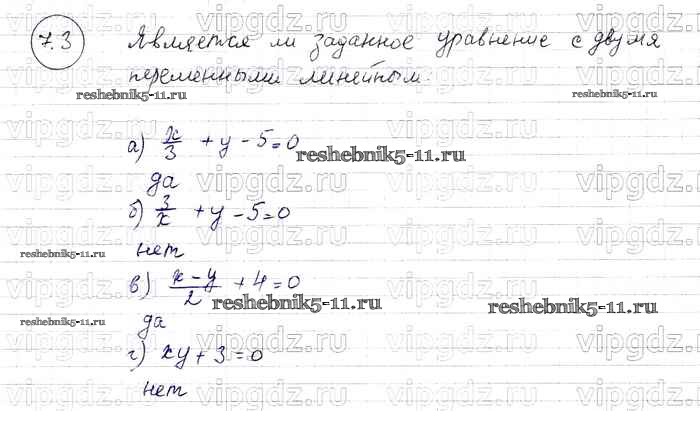 7.3 Является ли заданное уравнение с двумя
переменными линейным.
reshebnik5-11.ru
reshebnik5-11.ru
а) x/3 + y - 5 = 0
reshebnik5-11.ru
да
б) 3/x + y - 5 = 0
нет
reshebnik5-11.ru
в) (x - y)/2 + 4 = 0
reshebnik5-11.ru
reshebnik5-11.ru
reshebnik5-11.ru
да
г) xy + 3 = 0
нет
vipgdz.ru
vipgdz.ru
vipgdz.ru